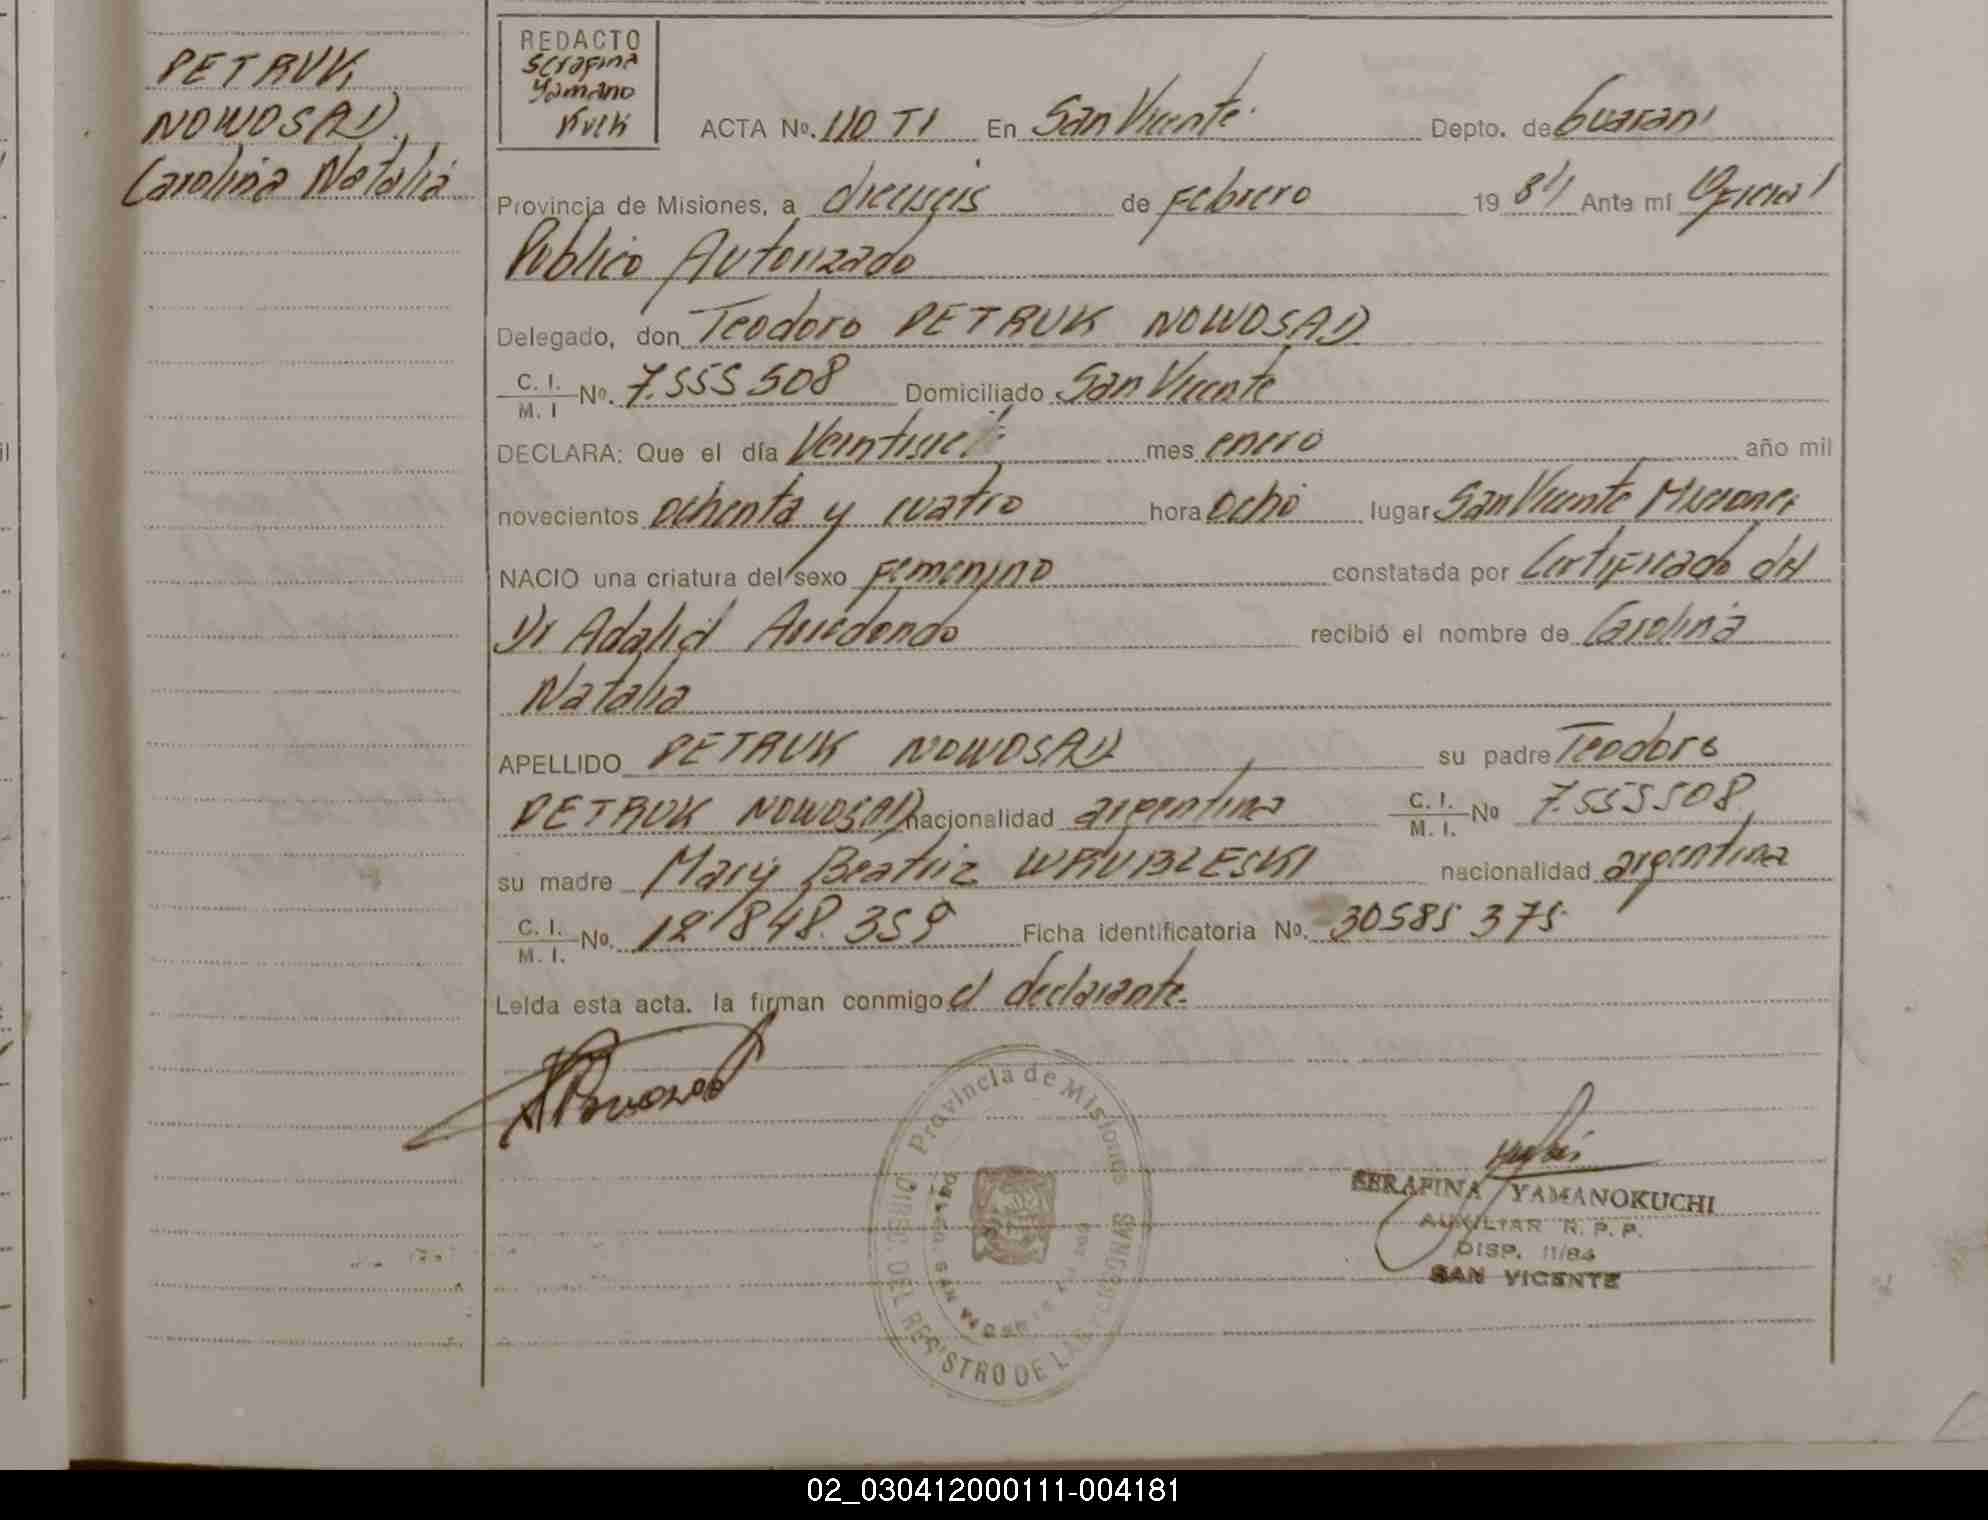 PETRUK
NOWOSAD,
Carolina Natalia
REDACTO
Serafina
Yamano
Kuchi
ACTA No. 110 TI En San Vicente Depto. de Guaraní
Provincia de Misiones, a dieciseis de Febrero 19 84 Ante mí Oficial
Publico Autorizado
Delegado, don Teodoro PETRUK NOWOSAD
C. I. / M. I No. 7.555 508 Domiciliado San Vicente
DECLARA: Que el día Veintisiete mes enero año mil
novecientos ochenta y cuatro hora ocho lugar San Vicente Misiones
NACIO una criatura del sexo Femenino constatada por Certificado del
Dr Adalid Arredondo recibió el nombre de Carolina
Natalia
APELLIDO PETRUK NOWOSAD su padre Teodoro
PETRUK NOWOSAD nacionalidad argentina C. I. / M. I. No 7.555508
su madre Mary Beatriz WRUBLESKI nacionalidad argentina
C. I. / M. I. No. 12.848.359 Ficha identificatoria No. 30585 375
Leída esta acta. la firman conmigo el declarante.
Provincia de Misiones
DIREC. DEL REGISTRO DE LAS PERSONAS
SERAFINA YAMANOKUCHI
AUXILIAR R. P. P.
DISP. 11/84
SAN VICENTE
02_030412000111-004181